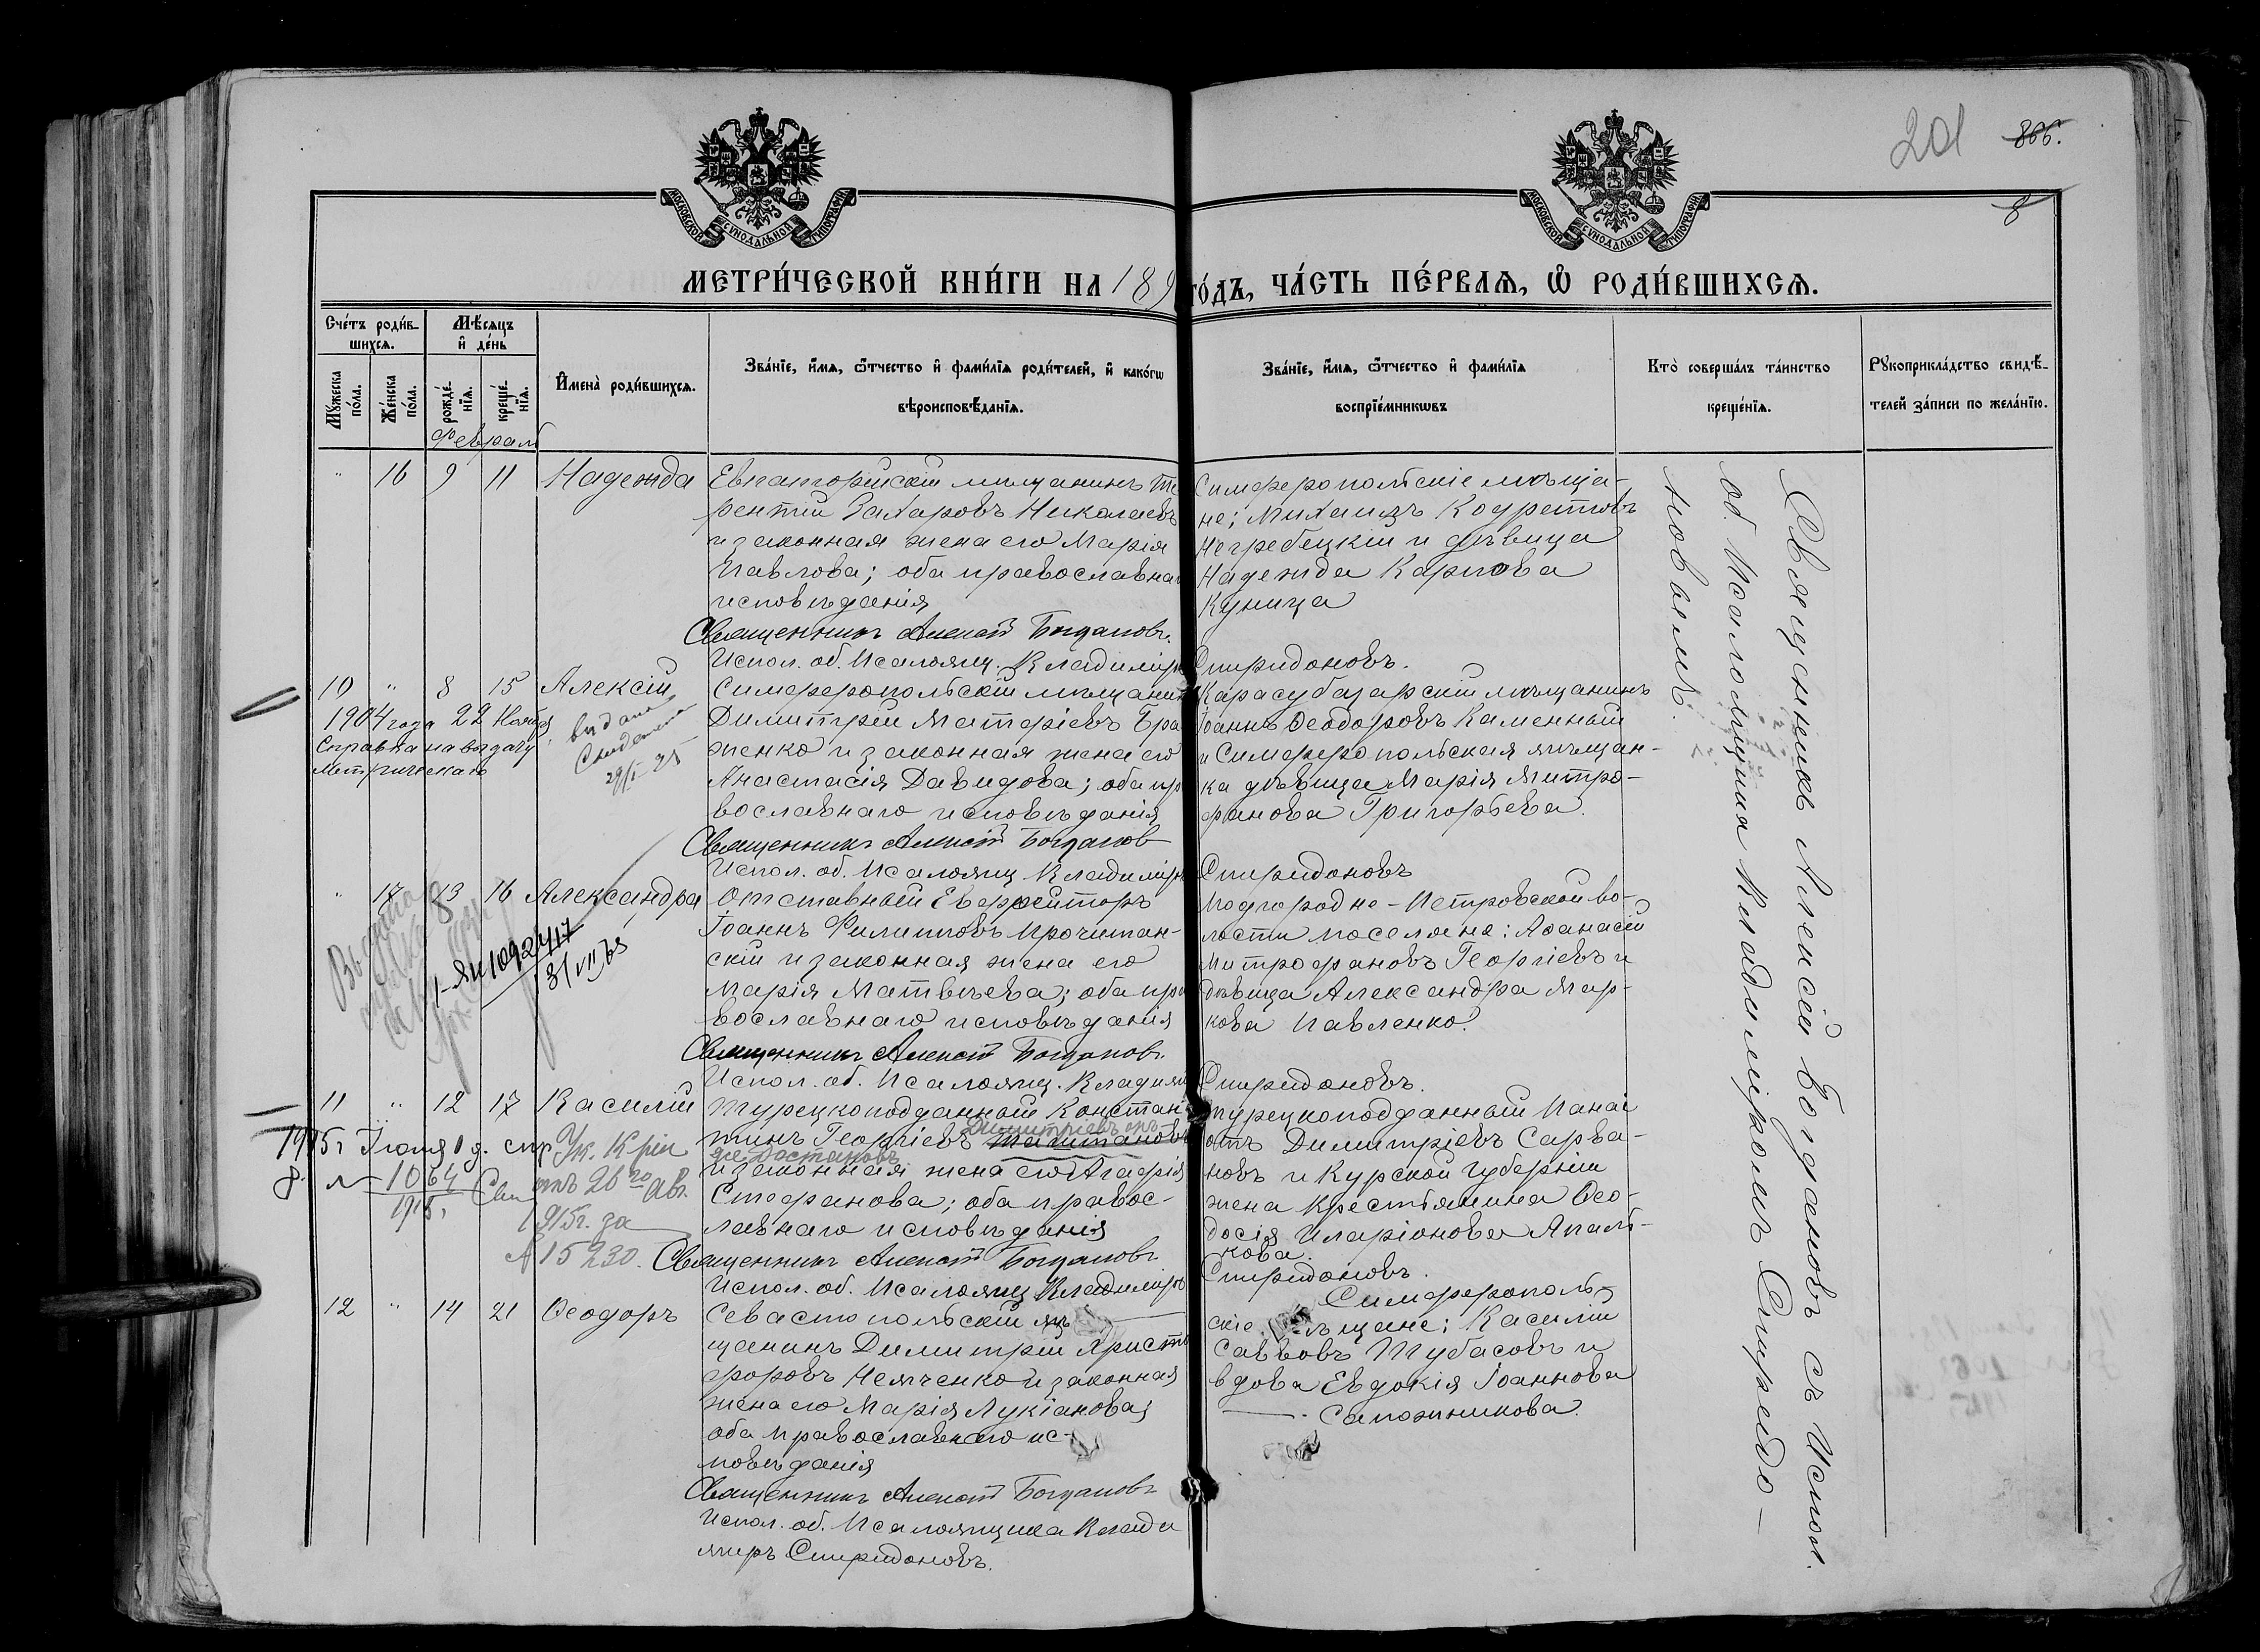 201
866.
8
МОСКОВСКОЙ СѴНОДАЛЬНОЙ ТИПОГРАФІИ
МОСКОВСКОЙ СѴНОДАЛЬНОЙ ТИПОГРАФІИ
МЕТРИ́ЧЕСКОЙ КНИ́ГИ НА 189
ГО́ДЪ, ЧА́СТЬ ПЕ́РВАѦ, Ѽ РОДИ́ВШИХСѦ.
Сче́тъ роди́в-
шихсѧ.
Мѣ́сѧцъ
и҆ де́нь
Мꙋ́жеска
по́ла.
Же́нска
по́ла.
рожде́-
нїѧ.
креще́-
нїѧ.
И҆мена̀ роди́вшихсѧ.
Зва́нїе, и҆́мѧ, ѻ҆́тчество и҆ фами́лїѧ роди́телей, и҆ како́гѡ
вѣроисповѣ́данїѧ.
Зва́нїе, и҆́мѧ, ѻ҆́тчество и҆ фами́лїѧ
воспрїе́мникѡвъ
Кто̀ соверша́лъ та́инство
креще́нїѧ.
Рꙋкоприкла́дство свидѣ́-
телей за́писи по жела́нїю.
Февраль
" 16 9 11 Надежда
Евпаторійскій мѣщанинъ Те
рентій Захаровъ Николаевъ
и законная жена его Марія
Павлова; оба православна
исповѣданія
Священникъ Алексій Богдановъ.
Испол. об. Псаломщ. Владиміръ Спиридоновъ.
Симферопольскіе мѣща-
не: Михаилъ Кодратовъ
Негребецкій и дѣвица
Надежда Карпова
Куница
10 " 8 15 Алексій
1904 года 22 Ноября
Справка на выдачу
метрическаго
выдано
29/I 25
Симферопольскій мѣщанин
Димитрій Матѳіевъ Бра
женко и законная жена его
Анастасія Давидова; оба пр
вославнаго исповѣданія
Священникъ Алексій Богдановъ
Испол. об. Псаломщ Владиміръ Спиридоновъ
Карасубазарскій мѣщанинъ
Іоаннъ Ѳеодоровъ Каменный
и Симферопольская мѣщан-
ка дѣвица Марія Митро-
фанова Григорьева.
" 17 13 16 Александра
Выдана
Отставный Ефрейторъ
Іоаннъ Филипповъ Прочитан-
скій и законная жена его
Марія Матвѣева; оба пра
вославнаго исповѣданія
Священникъ Алексій Богдановъ.
Испол. об. Псаломщ. Владим Спиридоновъ.
Подгородне-Петровской во-
лости поселяне: Аѳанасій
Митрофановъ Георгіевъ и
дѣвица Александра Мар-
кова Павленко.
11 " 12 17 Василій
1915 г Іюля 1 д. спр
1064
1915.
Ук. К-ріи
отъ 26го Авг.
1915г. за
№ 15230.
Турецкоподданный Констан
тинъ Георгіевъ
Димитріевъ
же Достановъ
и законная жена его Агафія
Стефанова; оба правос-
лавнаго исповѣданія
Священникъ Алексій Богдановъ
Испол. об. Псаломщ Владиміръ Спиридоновъ.
турецкоподданный Панаі
отъ Димитріевъ Сарва-
новъ и Курской губерніи
жена крестьянина Ѳео-
досія Иларіонова Апаль-
кова.
12 " 14 21 Ѳеодоръ
Севастопольскій мѣ
щанинъ Димитрій Христо
форовъ Немченко и законная
жена его Марія Лукіанова
оба православнаго ис-
повѣданія
Священникъ Алексій Богдановъ
Испол. об. Псаломщика Влади
миръ Спиридоновъ.
Симферополь-
скіе мѣщане: Василій
Саввовъ Шубасовъ и
вдова Евдокія Іоаннова
Сапожникова.
Священникъ Алексій Богдановъ съ Испол.
об. Псаломщика Владиміромъ Спиридо-
новымъ.